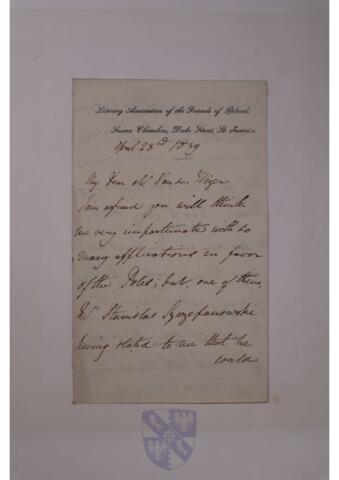 Literary Association of the Friends of Poland,
Sussex Chambers, Duke Street, St. James's.
April 23rd 1839
My Dear Mr Van de Weyer
I am afraid you will think
me very importunate with so
many applications in favor
of the Poles; but, one of them,
Mr Stanislas Szczepanowski
having stated to me that he
could